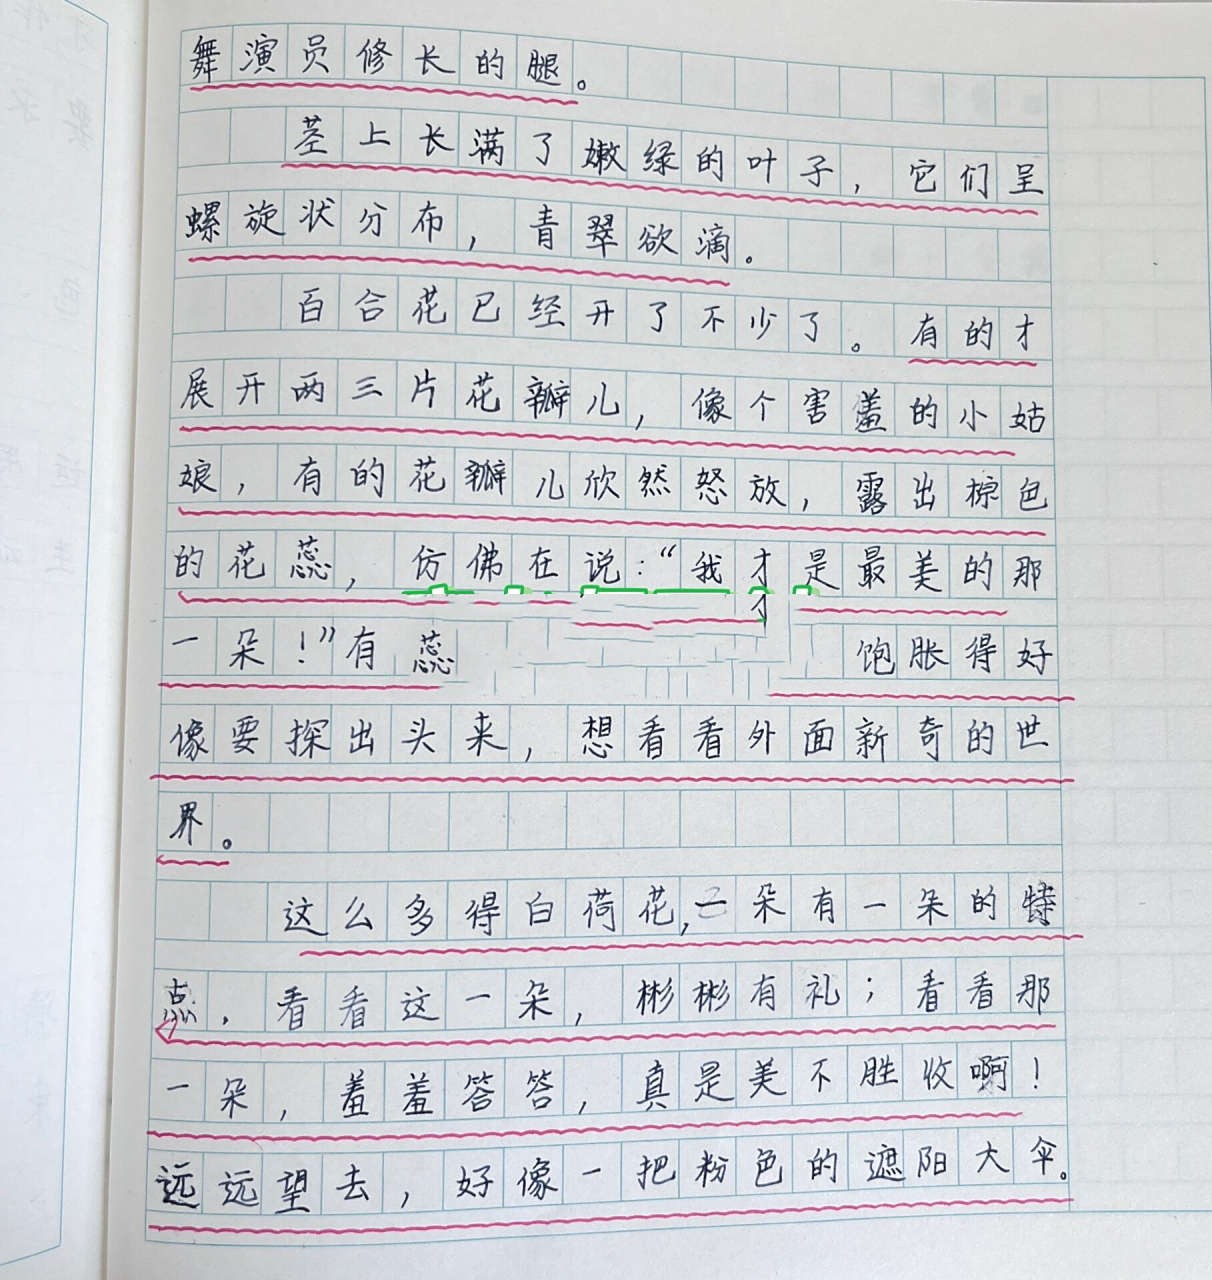 舞演员修长的腿。
茎上长满了嫩绿的叶子，它们呈
螺旋状分布，青翠欲滴。
百合花已经开了不少了。有的才
展开两三片花瓣儿，像个害羞的小姑
娘，有的花瓣儿欣然怒放，露出棕色
的花蕊，仿佛在说：“我才是最美的那
一朵！”有蕊 饱胀得好
像要探出头来，想看看外面新奇的世
界。
这么多得白荷花，一朵有一朵的特
点，看看这一朵，彬彬有礼；看看那
一朵，羞羞答答，真是美不胜收啊！
远远望去，好像一把粉色的遮阳大伞。